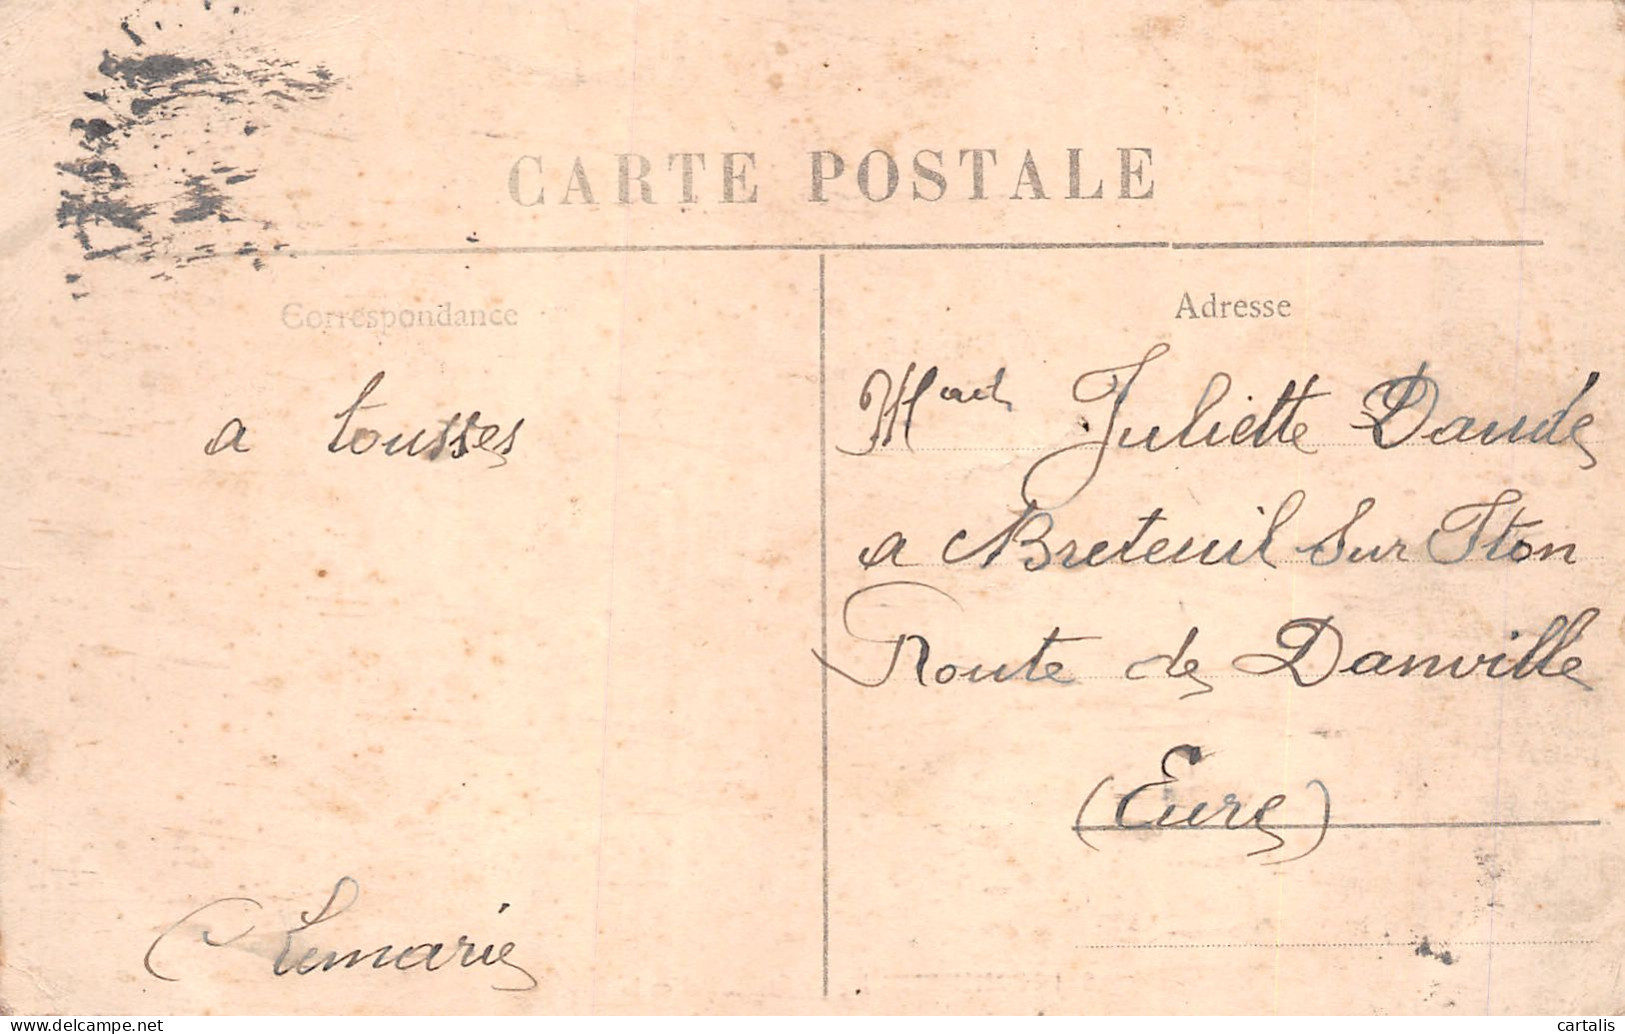 CARTE POSTALE
Correspondance
a tousses
Lemarie
Adresse
Juliette Daude
a Breteuil Sur Iton
Route de Danville
(Eure)
cartalis
delcampe.net